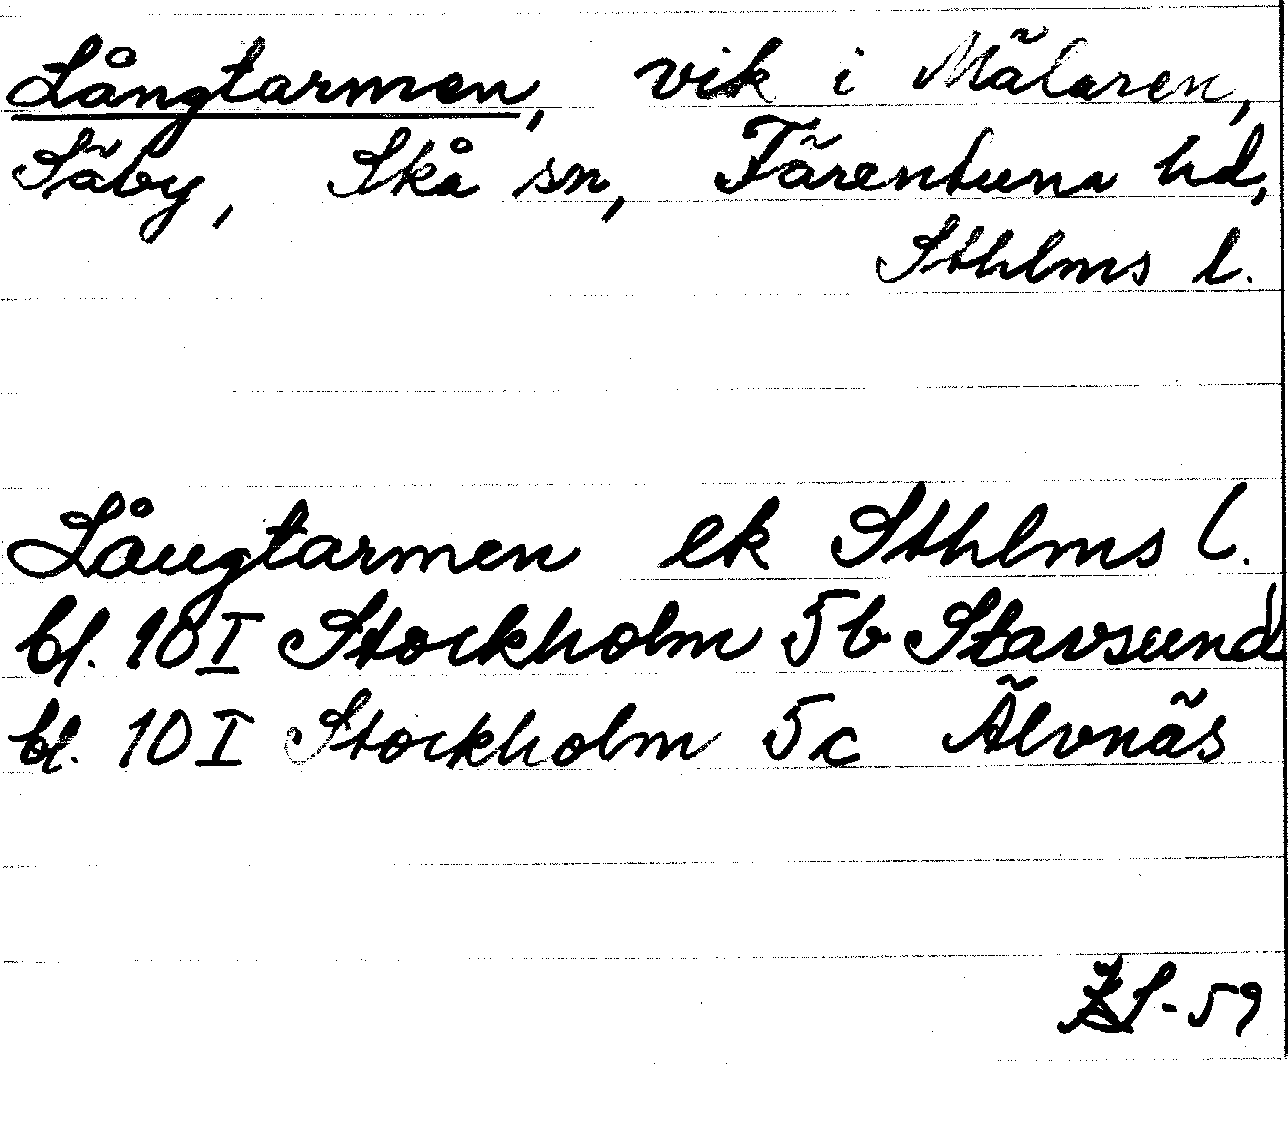 Långtarmen, vik i Mälaren,
Säby, Skå sn, Färentuna hd,
Sthlms l.
Långtarmen ek Sthlms l.
bl. 10 I Stockholm 5b Stavsund
bl. 10 I Stockholm 5c Älvnäs
-59